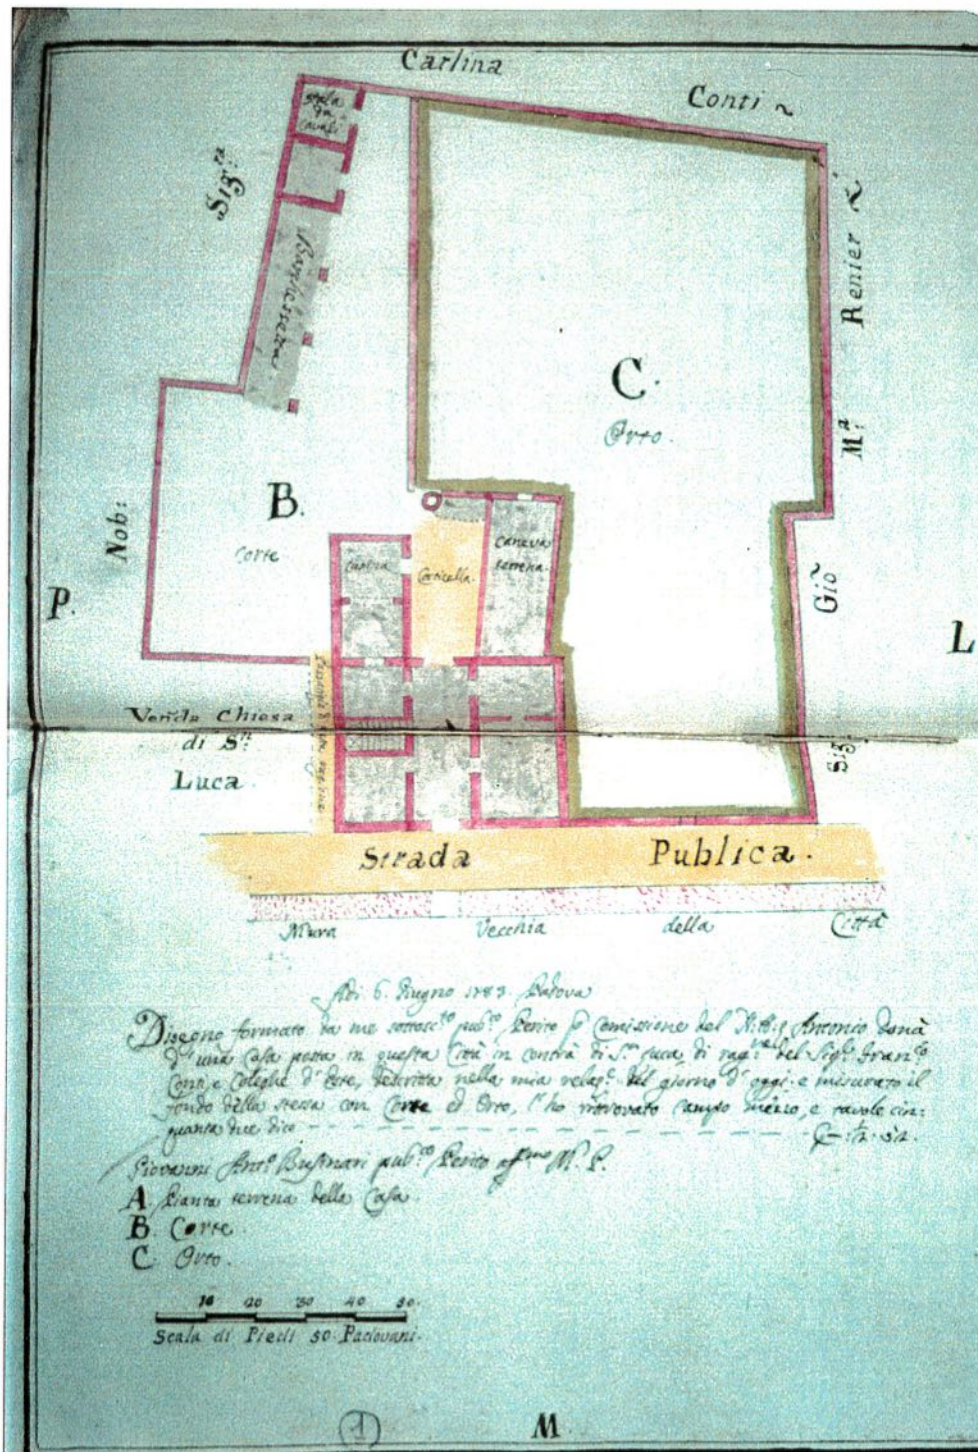 Carlina
Conti
Sig.ra
Renier
M.a
Gio
Sig.
Nob:
P.
L
stala
da
cavali
B.
Corte
C.
Orto.
Corticella.
Caneva
terrena.
Ven.da Chiesa
di S.n
Luca.
Strada Publica.
Mura Vecchia della Città
Adi 6. Giugno 1783. Padova
Disegno formato da me sottosc.to pub.co Perito Comissione del Antonio Donà
d'una Casa posta in questa Città in contrà di S.n Luca, di rag.ne del Sig.r Fran.co
Conti, e Coleghi d'Este, descritta nella mia relaz.e del giorno d'oggi e misurato il
fondo della stessa con Corte ed Orto, l'ho ritrovato Campo mezzo, e tavole cin:
quanta due dico
Giovanni Ant.o pub.co Perito M. P.
A. Pianta terrena della Casa.
B. Corte.
C. Orto.
10 20 30 40 50.
Scala di Piedi 50 Padovani.
1
M